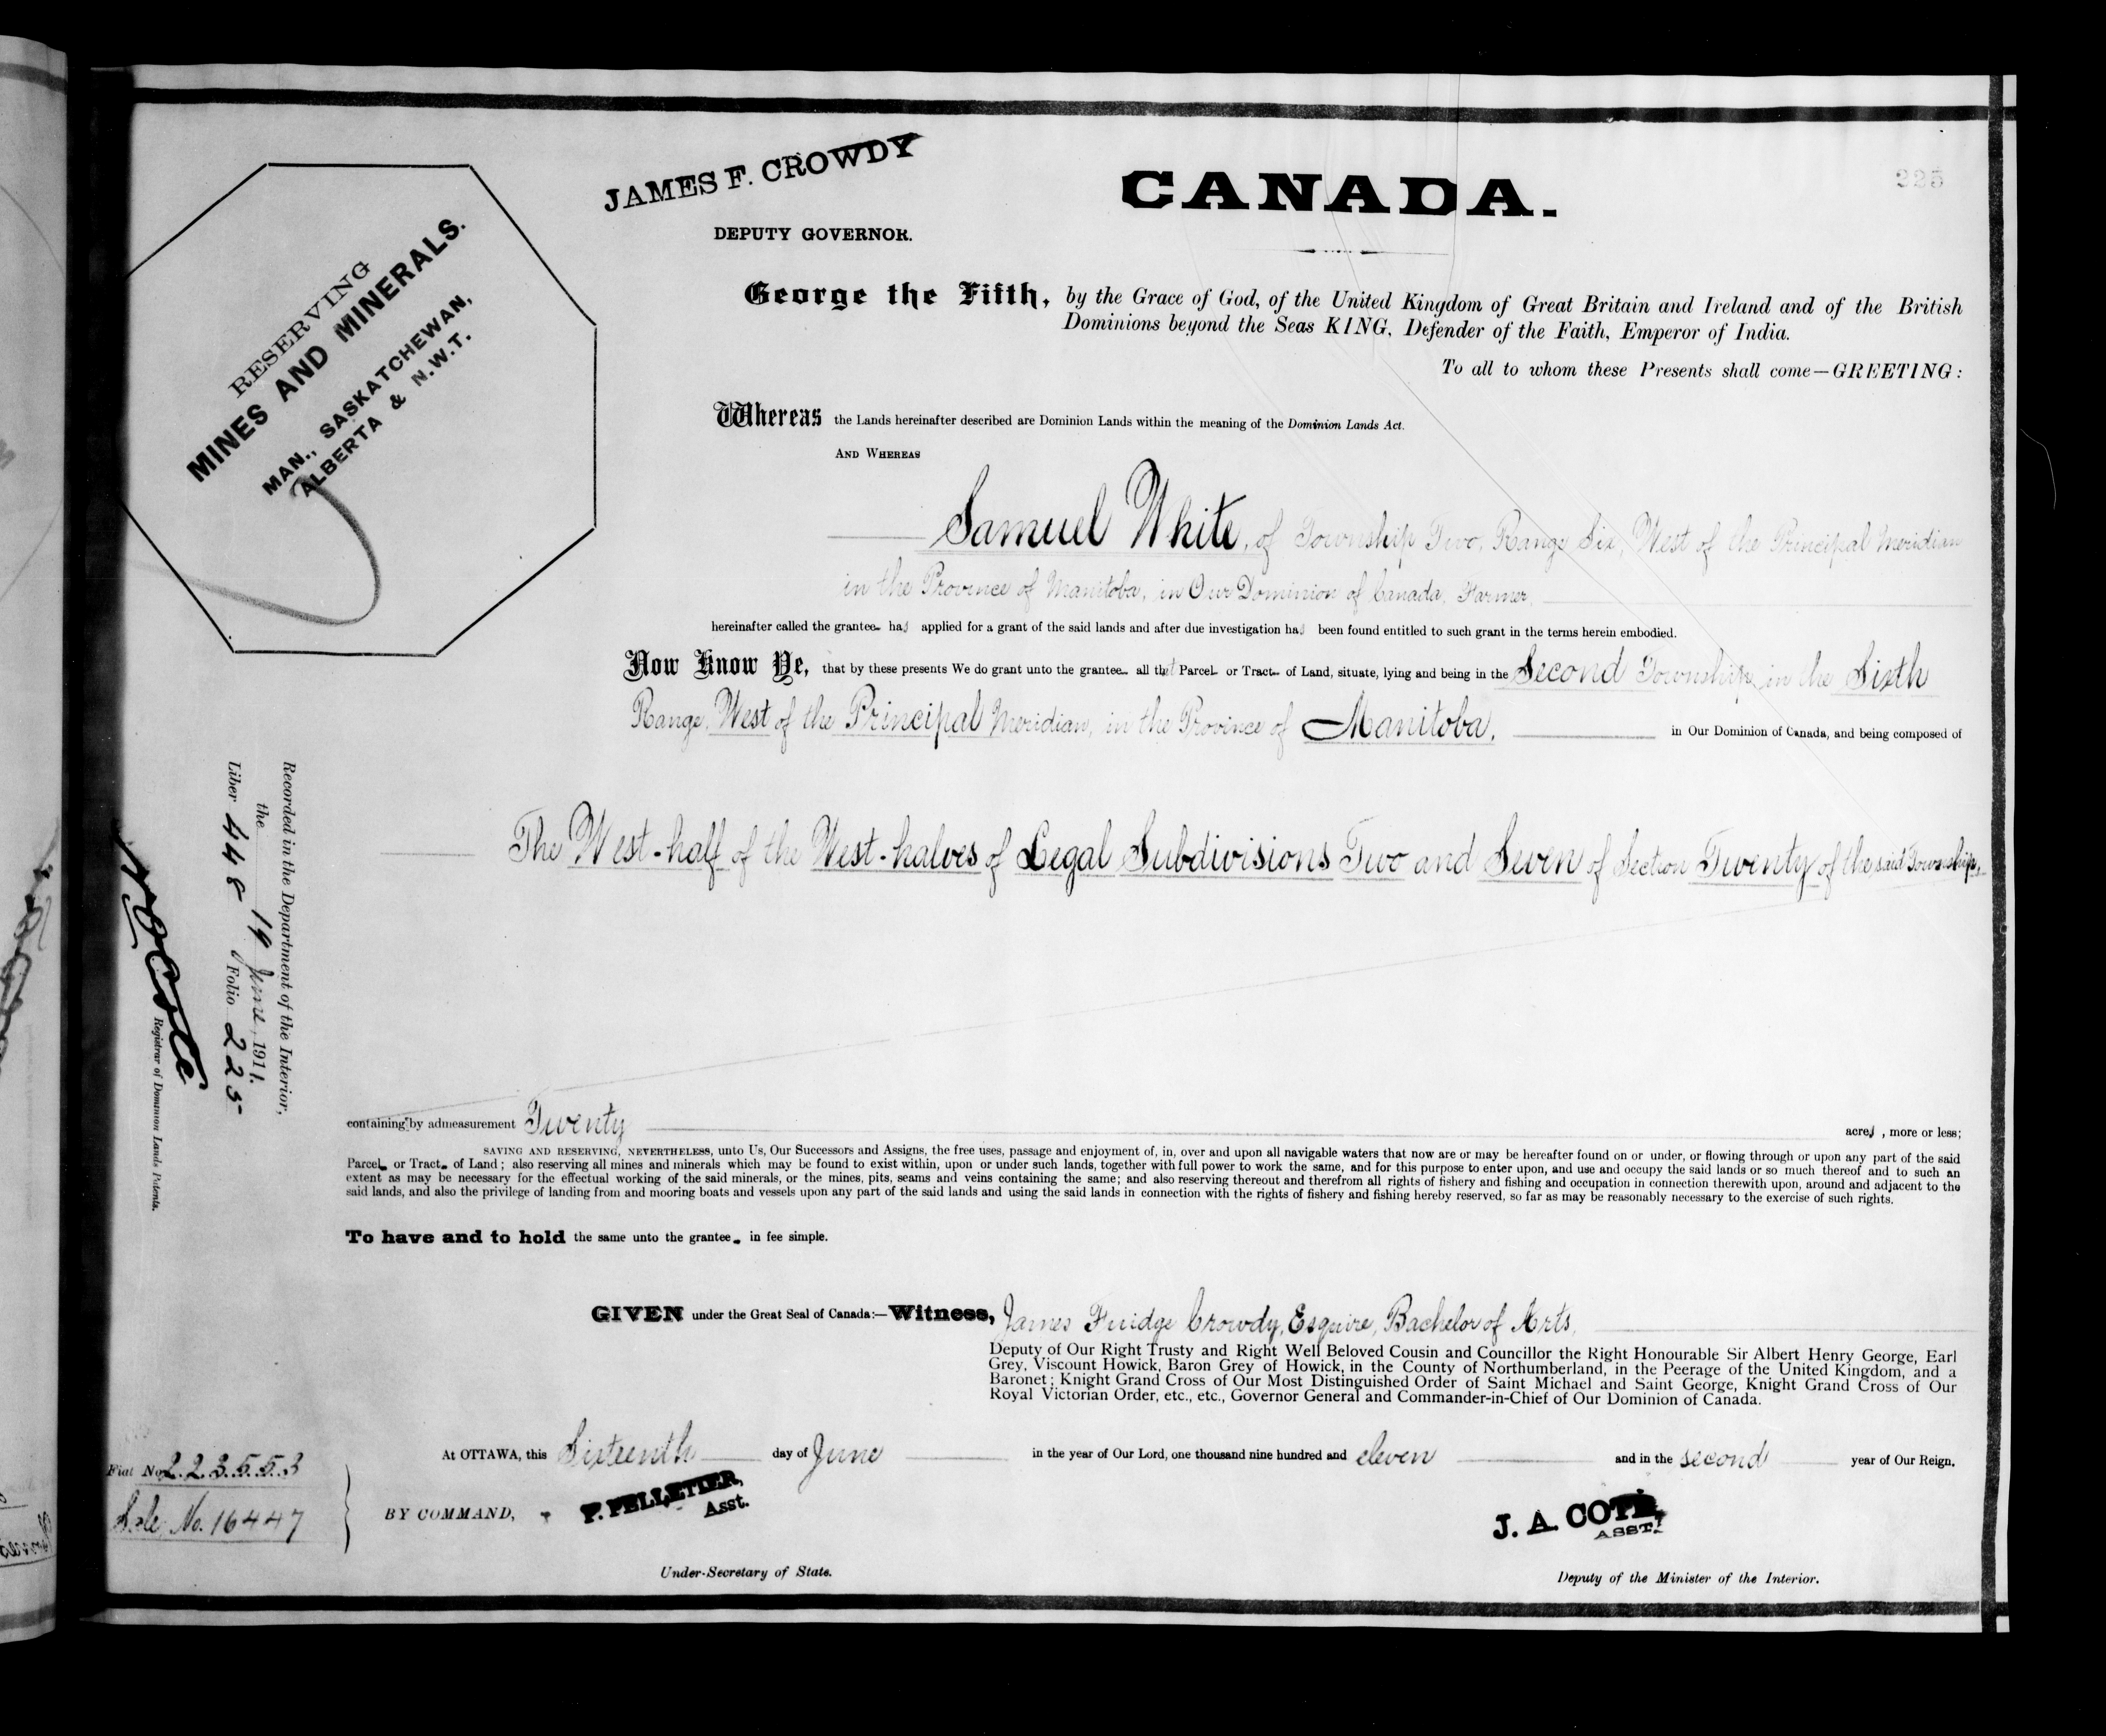 225
JAMES F. CROWDY
DEPUTY GOVERNOR.
CANADA.
RESERVING
MINES AND MINERALS.
MAN., SASKATCHEWAN,
ALBERTA & N.W.T.
George the Fifth, by the Grace of God, of the United Kingdom of Great Britain and Ireland and of the British
Dominions beyond the Seas KING, Defender of the Faith, Emperor of India.
To all to whom these Presents shall come—GREETING:
Whereas the Lands hereinafter described are Dominion Lands within the meaning of the Dominion Lands Act.
AND WHEREAS
Samuel White, of Township Two, Range Six, West of the Principal Meridian
in the Province of Manitoba, in Our Dominion of Canada, Farmer,
hereinafter called the grantee has applied for a grant of the said lands and after due investigation has been found entitled to such grant in the terms herein embodied.
Now Know Ye, that by these presents We do grant unto the grantee all that Parcel or Tract of Land, situate, lying and being in the Second Township in the Sixth
Range, West of the Principal Meridian, in the Province of Manitoba, in Our Dominion of Canada, and being composed of
The West-half of the West-halves of Legal Subdivisions Two and Seven of Section Twenty of the said Township,
containing by admeasurement Twenty acres, more or less;
SAVING AND RESERVING, NEVERTHELESS, unto Us, Our Successors and Assigns, the free uses, passage and enjoyment of, in, over and upon all navigable waters that now are or may be hereafter found on or under, or flowing through or upon any part of the said
Parcel or Tract of Land; also reserving all mines and minerals which may be found to exist within, upon or under such lands, together with full power to work the same, and for this purpose to enter upon, and use and occupy the said lands or so much thereof and to such an
extent as may be necessary for the effectual working of the said minerals, or the mines, pits, seams and veins containing the same; and also reserving thereout and therefrom all rights of fishery and fishing and occupation in connection therewith upon, around and adjacent to the
said lands, and also the privilege of landing from and mooring boats and vessels upon any part of the said lands and using the said lands in connection with the rights of fishery and fishing hereby reserved, so far as may be reasonably necessary to the exercise of such rights.
To have and to hold the same unto the grantee in fee simple.
GIVEN under the Great Seal of Canada:—Witness, James Fuidge Crowdy, Esquire, Bachelor of Arts,
Deputy of Our Right Trusty and Right Well Beloved Cousin and Councillor the Right Honourable Sir Albert Henry George, Earl
Grey, Viscount Howick, Baron Grey of Howick, in the County of Northumberland, in the Peerage of the United Kingdom, and a
Baronet; Knight Grand Cross of Our Most Distinguished Order of Saint Michael and Saint George, Knight Grand Cross of Our
Royal Victorian Order, etc., etc., Governor General and Commander-in-Chief of Our Dominion of Canada.
At OTTAWA, this Sixteenth day of June in the year of Our Lord, one thousand nine hundred and eleven and in the second year of Our Reign.
BY COMMAND,
P. PELLETIER,
Asst.
Under-Secretary of State.
J. A. COTÉ,
ASST.
Deputy of the Minister of the Interior.
Recorded in the Department of the Interior,
the 19 June, 1911.
Liber 448 Folio 225
N O Coté
Registrar of Dominion Lands Patents.
Fiat No. 223553
Sale No. 16447